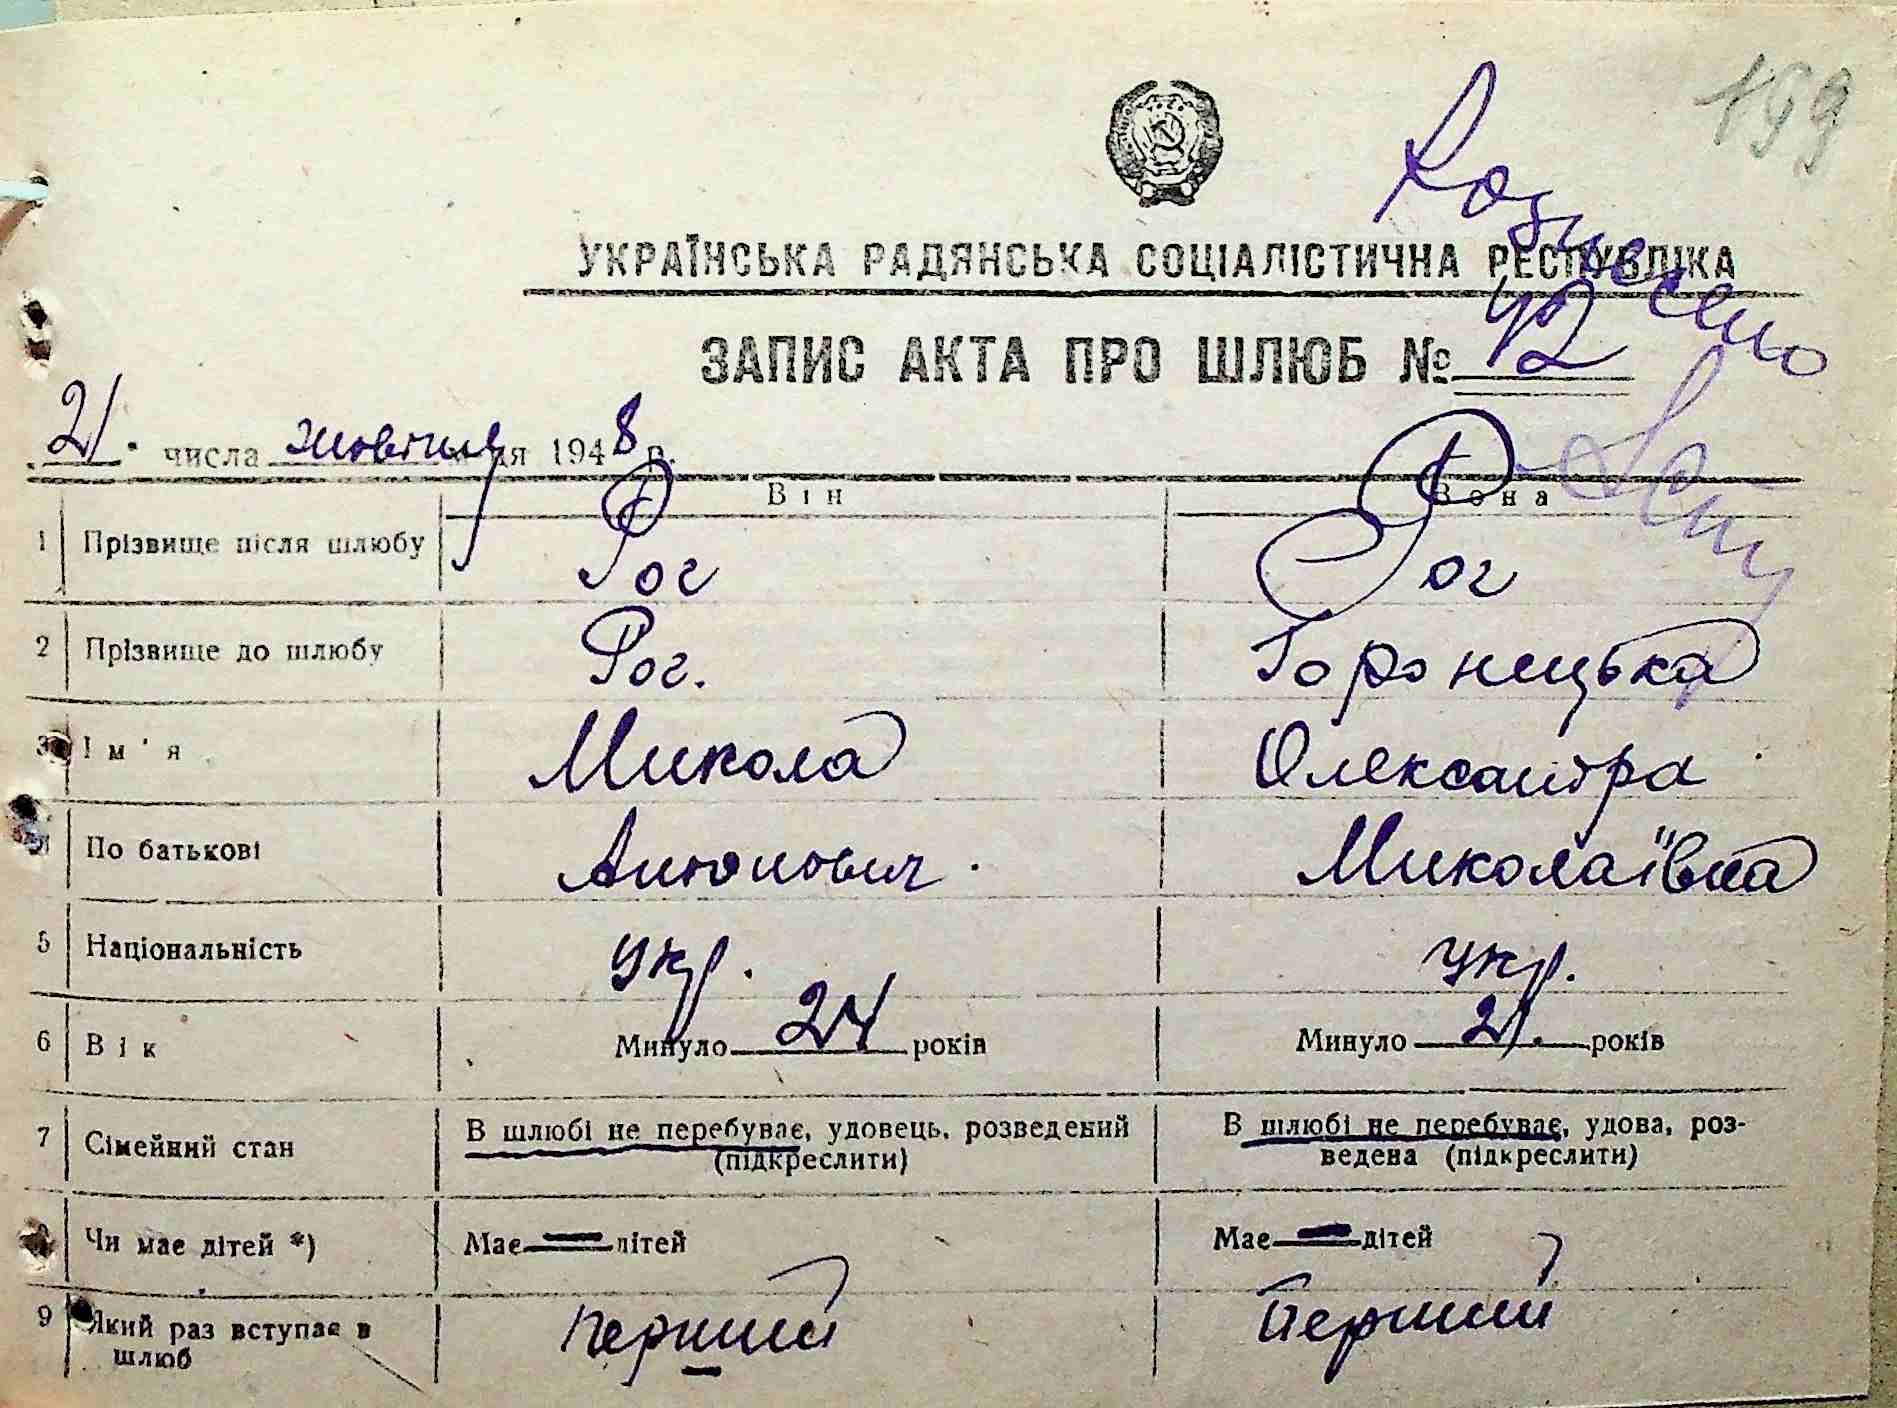 199
Рознесено
УКРАЇНСЬКА РАДЯНСЬКА СОЦІАЛІСТИЧНА РЕСПУБЛІКА
ЗАПИС АКТА ПРО ШЛЮБ № 42
21. числа жовтня ця 1948 р.
Він Вона
1 Прізвище після шлюбу Рог Рог
2 Прізвище до шлюбу Рог. Горонецька
3 Ім'я Микола Олександра
По батькові Антонович Миколаївна
5 Національність укр. укр.
6 Вік Минуло 24 років Минуло 21. років
7 Сімейний стан В шлюбі не перебуває, удовець, розведений (підкреслити) В шлюбі не перебуває, удова, роз-
ведена (підкреслити)
Чи має дітей *) Має — дітей Має — дітей
9 Який раз вступає в шлюб перший перший